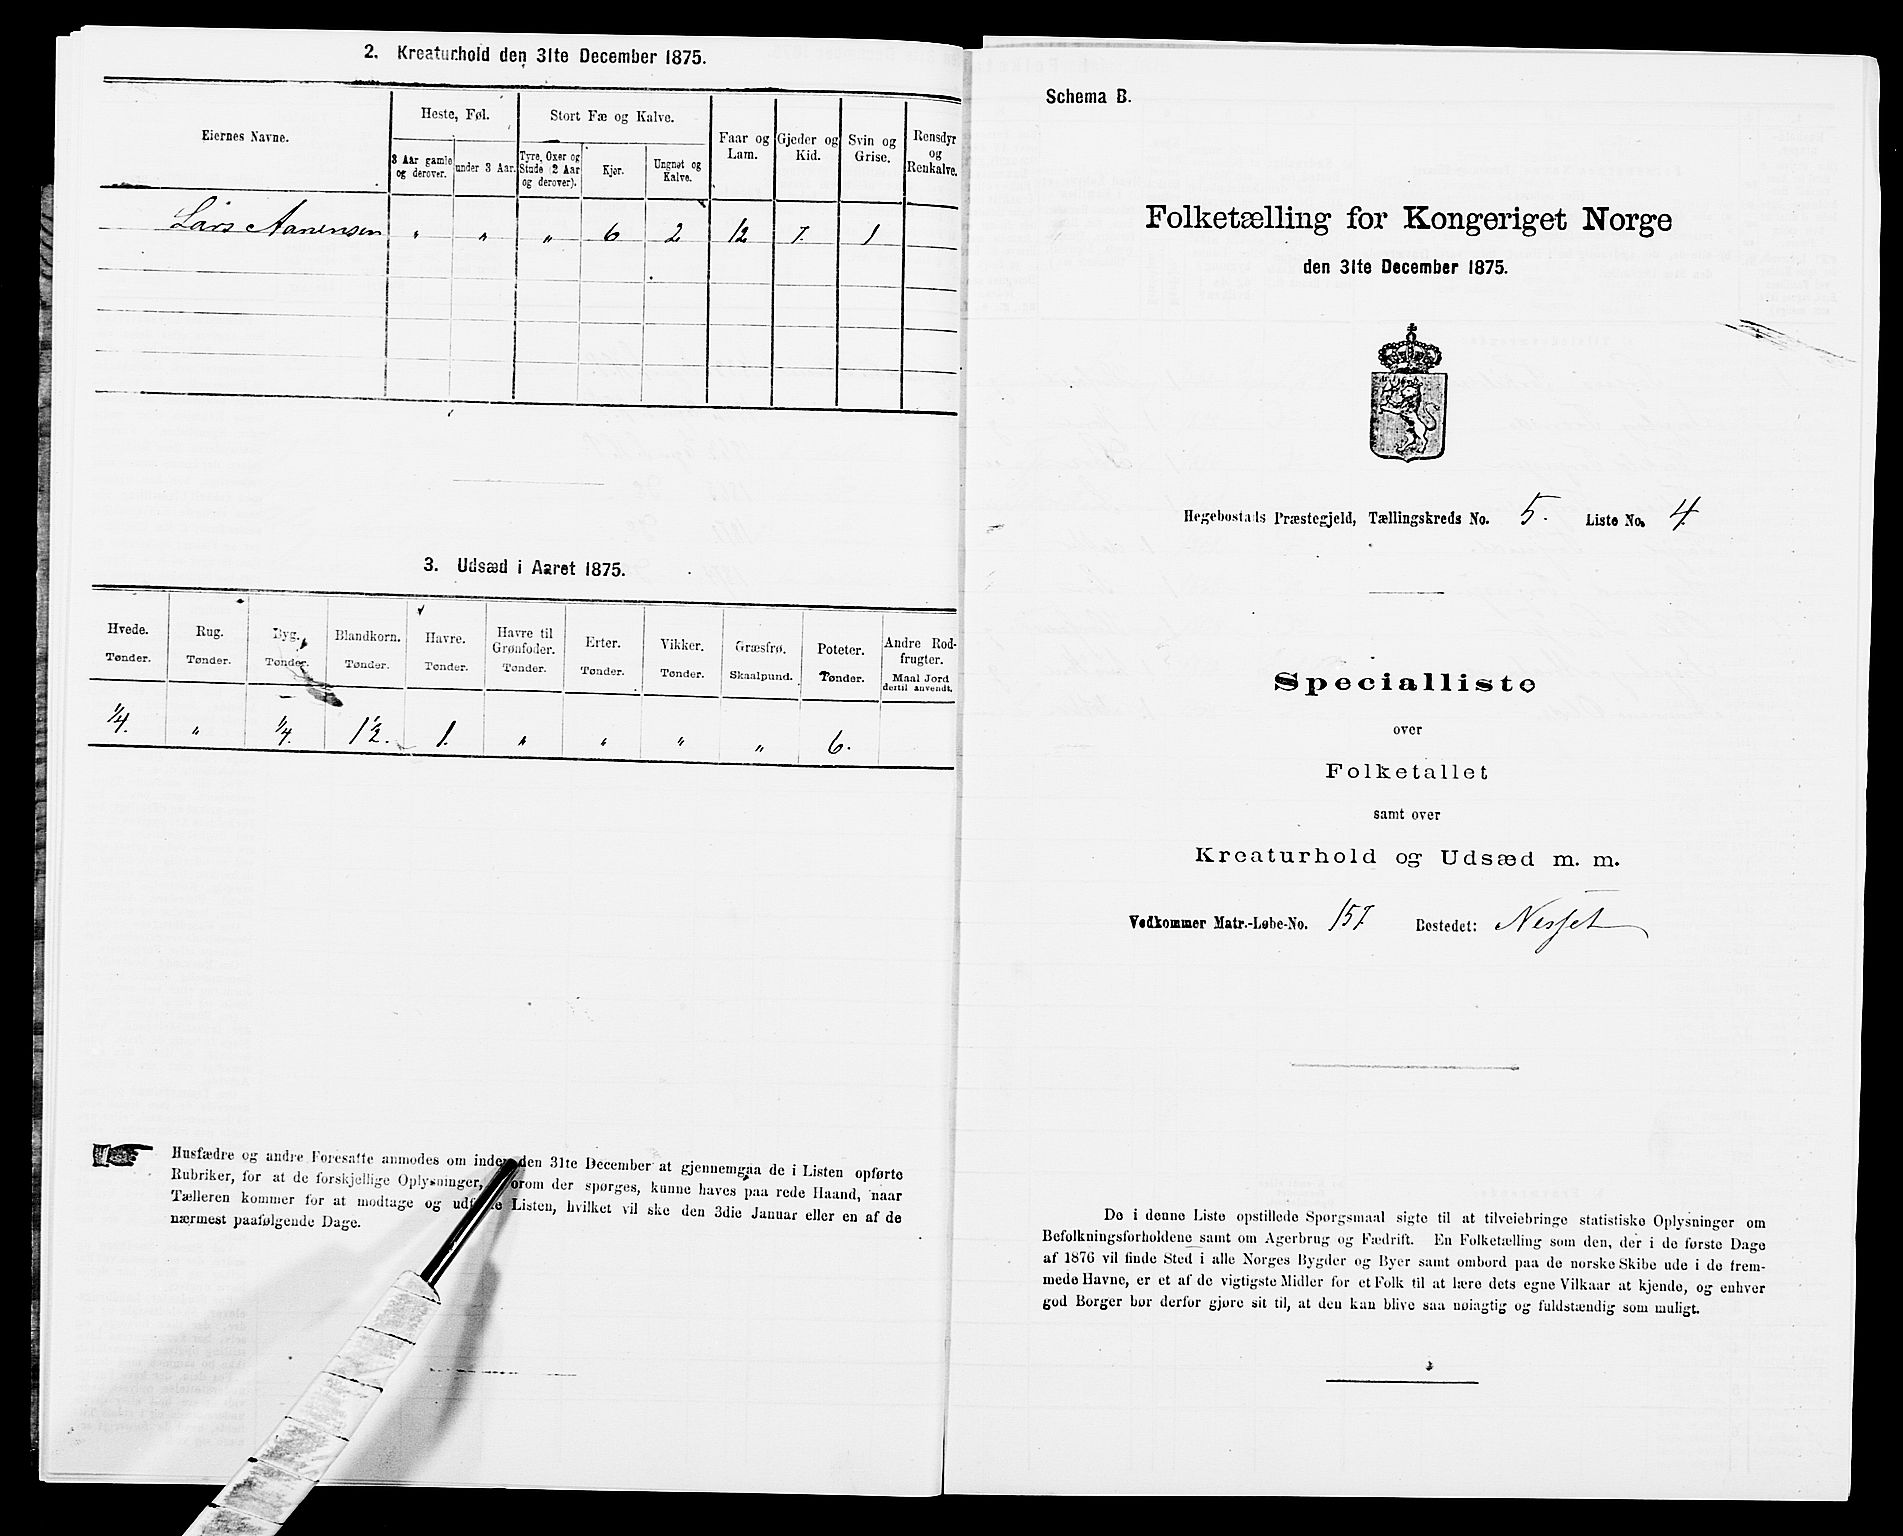 2. Kreaturhold den 31te December 1875.
Eiernes Navne.
Heste, Føl.
Stort Fæ og Kalve.
Faar og Lam.
Gjeder og Kid.
Svin og Grise.
Rensdyr og Renkalve.
3 Aar gamle og derover.
under 3 Aar.
Tyre, Oxer og Stude (2 Aar og derover).
Kjør.
Ungnøt og Kalve.
Lars Aanensen " " " 6 2 12 7. 1
3. Udsæd i Aaret 1875.
Hvede. Rug. Byg. Blandkorn. Havre. Havre til Grønfoder. Erter. Vikker. Græsfrø. Poteter. Andre Rodfrugter.
Tønder. Tønder. Tønder. Tønder. Tønder. Tønder. Tønder. Tønder. Skaalpund. Tønder. Maal Jord dertil anvendt.
1/4. " 1/4. 1 1/2. 1. " " " " 6.
Husfædre og andre Foresatte anmodes om inden den 31te December at gjennemgaa de i Listen opførte
Rubriker, for at de forskjellige Oplysninger, orom der spørges, kunne haves paa rede Haand, naar
Tælleren kommer for at modtage og udf e Listen, hvilket vil ske den 3die Januar eller en af de
nærmest paafølgende Dage.
Schema B.
Folketælling for Kongeriget Norge
den 31te December 1875.
Hegebostads Præstegjeld, Tællingskreds No. 5. Liste No. 4
Specialliste
over
Folketallet
samt over
Kreaturhold og Udsæd m. m.
Vedkommer Matr.-Løbe-No. 157. Bostedet: Nesset
De i denne Liste opstillede Spørgsmaal sigte til at tilveiebringe statistiske Oplysninger om
Befolkningsforholdene samt om Agerbrug og Fædrift. En Folketælling som den, der i de første Dage
af 1876 vil finde Sted i alle Norges Bygder og Byer samt ombord paa de norske Skibe ude i de frem-
mede Havne, er et af de vigtigste Midler for et Folk til at lære dets egne Vilkaar at kjende, og enhver
god Borger bør derfor gjøre sit til, at den kan blive saa nøiagtig og fuldstændig som muligt.